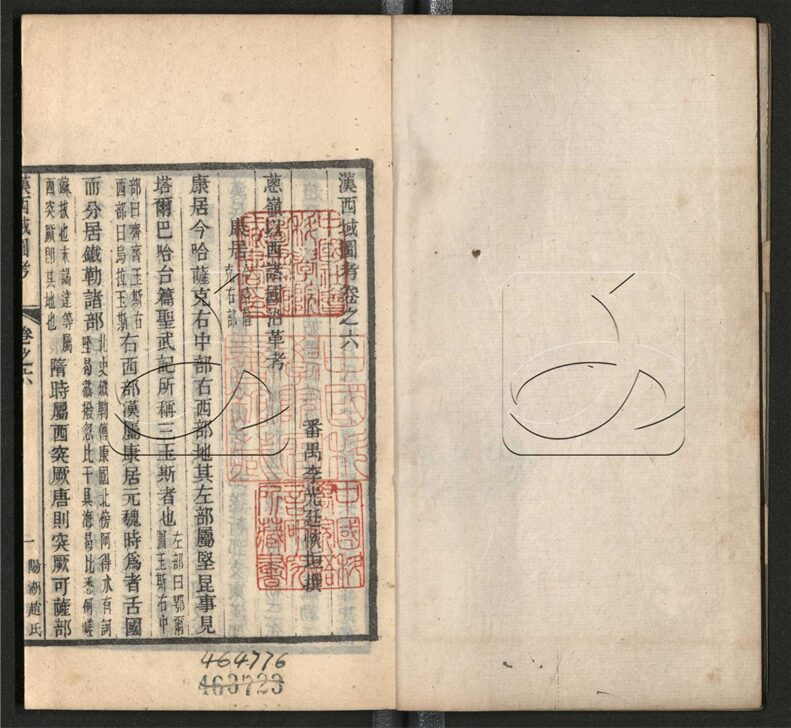 漢西域圖考卷之六
番禺李光廷恢垣撰
蔥嶺以西諸國沿革考
康居
康居今哈薩克右中部右西部地其左部屬堅昆事見
塔爾巴哈台篇聖武記所稱三玉斯者也左部曰鄂爾圖玉斯右中
部曰齊齊玉斯右西部曰烏拉玉斯右西部漢屬康居元魏時爲者舌國
而分居鐵勒諸部北史鐵勒傳康國北傍阿得水有訶咥曷嶻撥忽比干具海曷比悉何嵯
蘇拔也末謁達等屬西突厥即其地也隋時屬西突厥唐則突厥可薩部
漢西域圖考
卷之六
一
陽湖趙氏
464776
463723